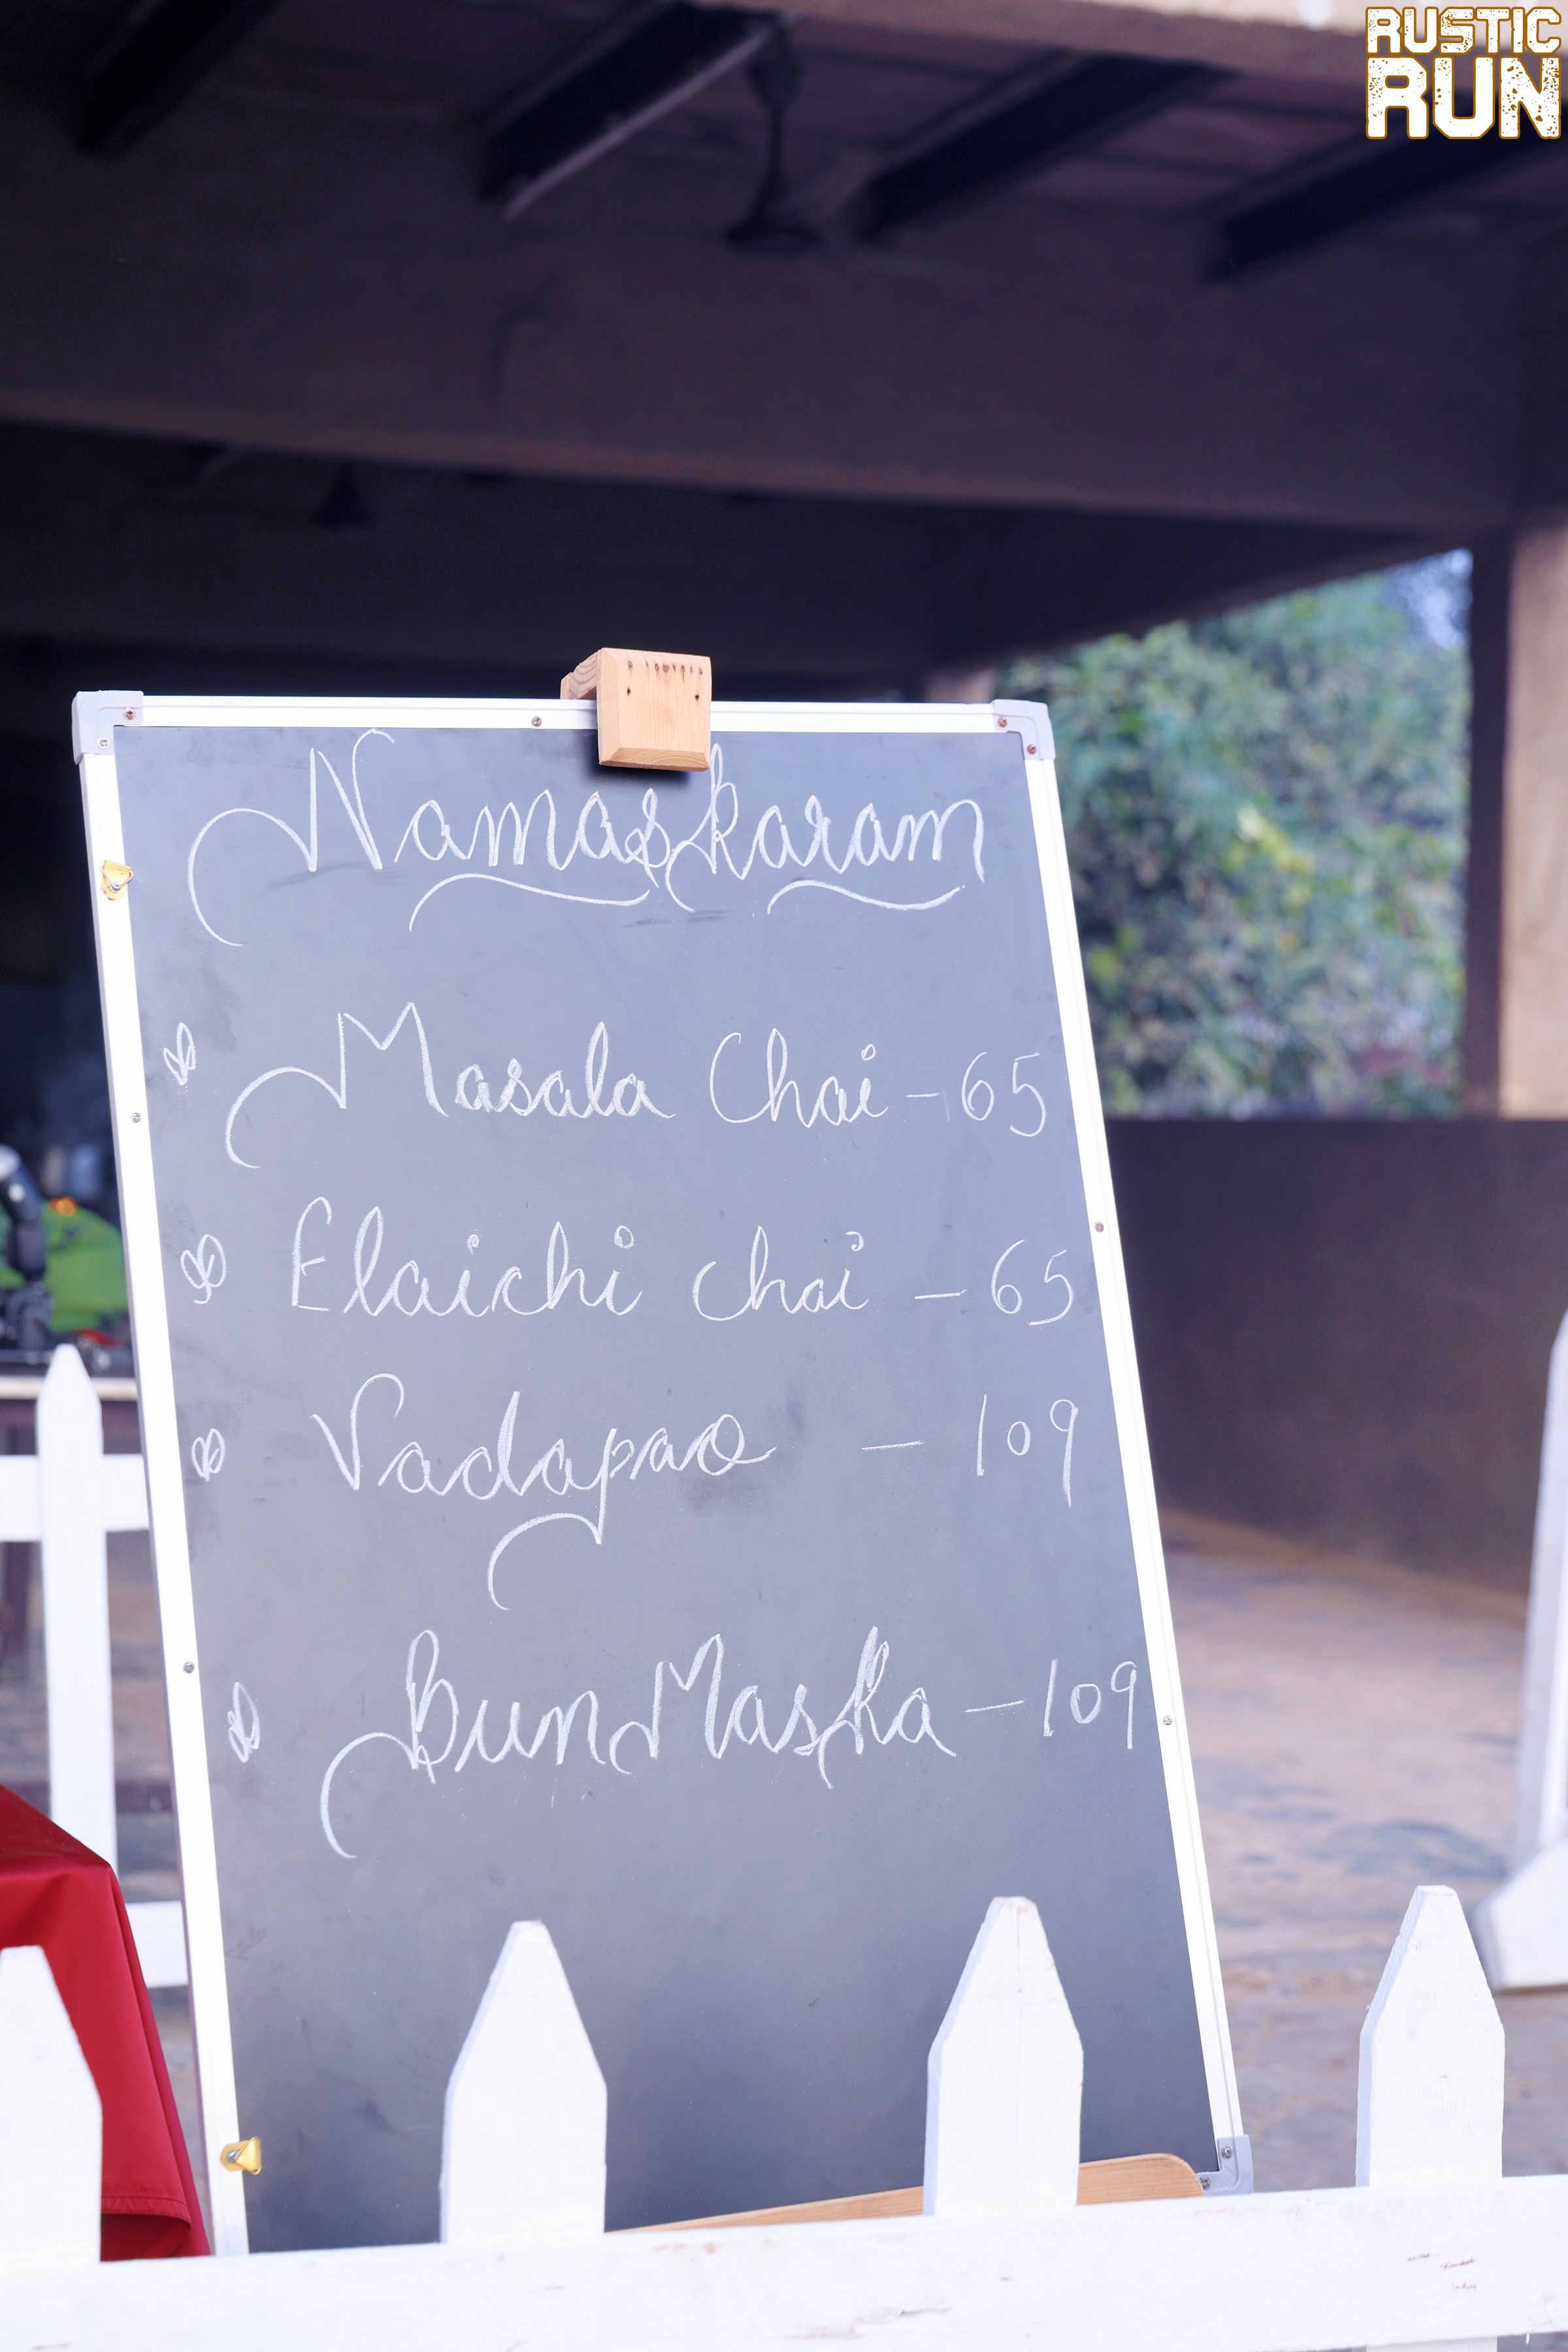 RUSTIC
RUN
Namaskaram
Masala Chai - 65
Elaichi chai - 65
Vadapao - 109
Bun Maska - 109